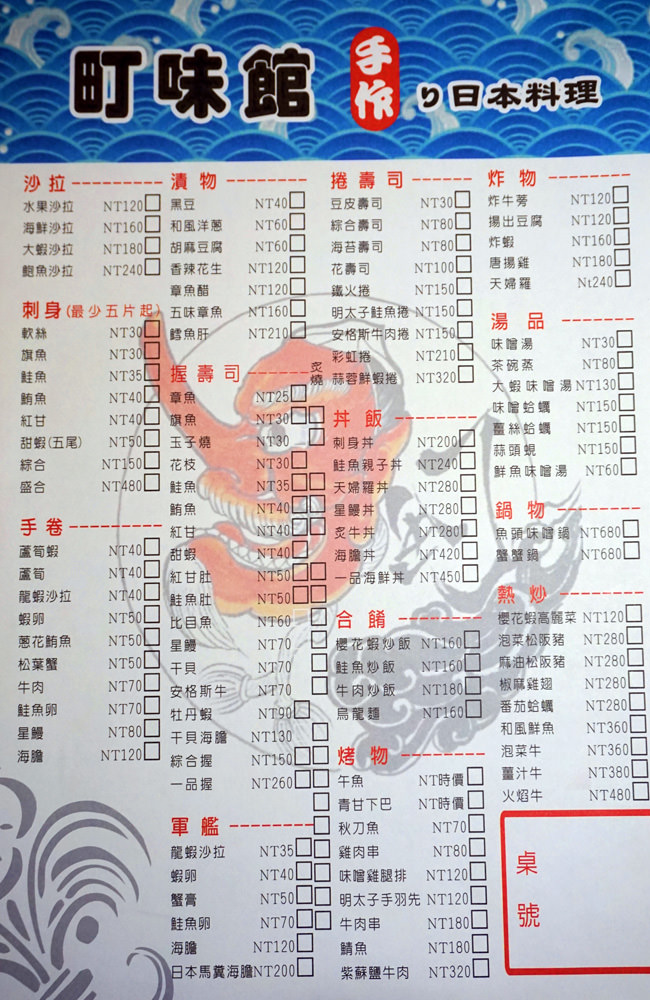 町味館 手作り日本料理
沙拉
水果沙拉 NT120
海鮮沙拉 NT160
大蝦沙拉 NT180
鮑魚沙拉 NT240
刺身(最少五片起)
軟絲 NT30
旗魚 NT30
鮭魚 NT35
鮪魚 NT40
紅甘 NT40
甜蝦(五尾) NT50
綜合 NT150
盛合 NT480
手卷
蘆筍蝦 NT40
蘆筍 NT40
龍蝦沙拉 NT40
蝦卵 NT50
蔥花鮪魚 NT50
松葉蟹 NT50
牛肉 NT70
鮭魚卵 NT70
星鰻 NT80
海膽 NT120
漬物
黑豆 NT40
和風洋蔥 NT60
胡麻豆腐 NT60
香辣花生 NT120
章魚醋 NT120
五味章魚 NT160
鱈魚肝 NT210
握壽司 炙燒
章魚 NT25
旗魚 NT30
玉子燒 NT30
花枝 NT30
鮭魚 NT35
鮪魚 NT40
紅甘 NT40
甜蝦 NT40
紅甘肚 NT50
鮭魚肚 NT50
比目魚 NT60
星鰻 NT70
干貝 NT70
安格斯牛 NT70
牡丹蝦 NT90
干貝海膽 NT130
綜合握 NT150
一品握 NT260
軍艦
龍蝦沙拉 NT35
蝦卵 NT40
蟹膏 NT50
鮭魚卵 NT70
海膽 NT120
日本馬糞海膽NT200
捲壽司
豆皮壽司 NT30
綜合壽司 NT80
海苔壽司 NT80
花壽司 NT100
鐵火捲 NT150
明太子鮭魚捲 NT150
安格斯牛肉捲 NT150
彩虹捲 NT210
蒜蓉鮮蝦捲 NT320
丼飯
刺身丼 NT200
鮭魚親子丼 NT240
天婦羅丼 NT280
星鰻丼 NT280
炙牛丼 NT280
海膽丼 NT420
一品海鮮丼 NT450
合餚
櫻花蝦炒飯 NT160
鮭魚炒飯 NT160
牛肉炒飯 NT180
烏龍麵 NT160
烤物
午魚 NT時價
青甘下巴 NT時價
秋刀魚 NT70
雞肉串 NT80
味噌雞腿排 NT120
明太子手羽先 NT120
牛肉串 NT180
鯖魚 NT180
紫蘇鹽牛肉 NT320
炸物
炸牛蒡 NT120
揚出豆腐 NT120
炸蝦 NT160
唐揚雞 NT180
天婦羅 Nt240
湯品
味噌湯 NT30
茶碗蒸 NT80
大蝦味噌湯 NT130
味噌蛤蠣 NT150
薑絲蛤蠣 NT150
蒜頭蜆 NT150
鮮魚味噌湯 NT60
鍋物
魚頭味噌鍋 NT680
蟹蟹鍋 NT680
熱炒
櫻花蝦高麗菜 NT120
泡菜松阪豬 NT280
麻油松阪豬 NT280
椒麻雞翅 NT280
番茄蛤蠣 NT280
和風鮮魚 NT360
泡菜牛 NT360
薑汁牛 NT380
火焰牛 NT480
桌號